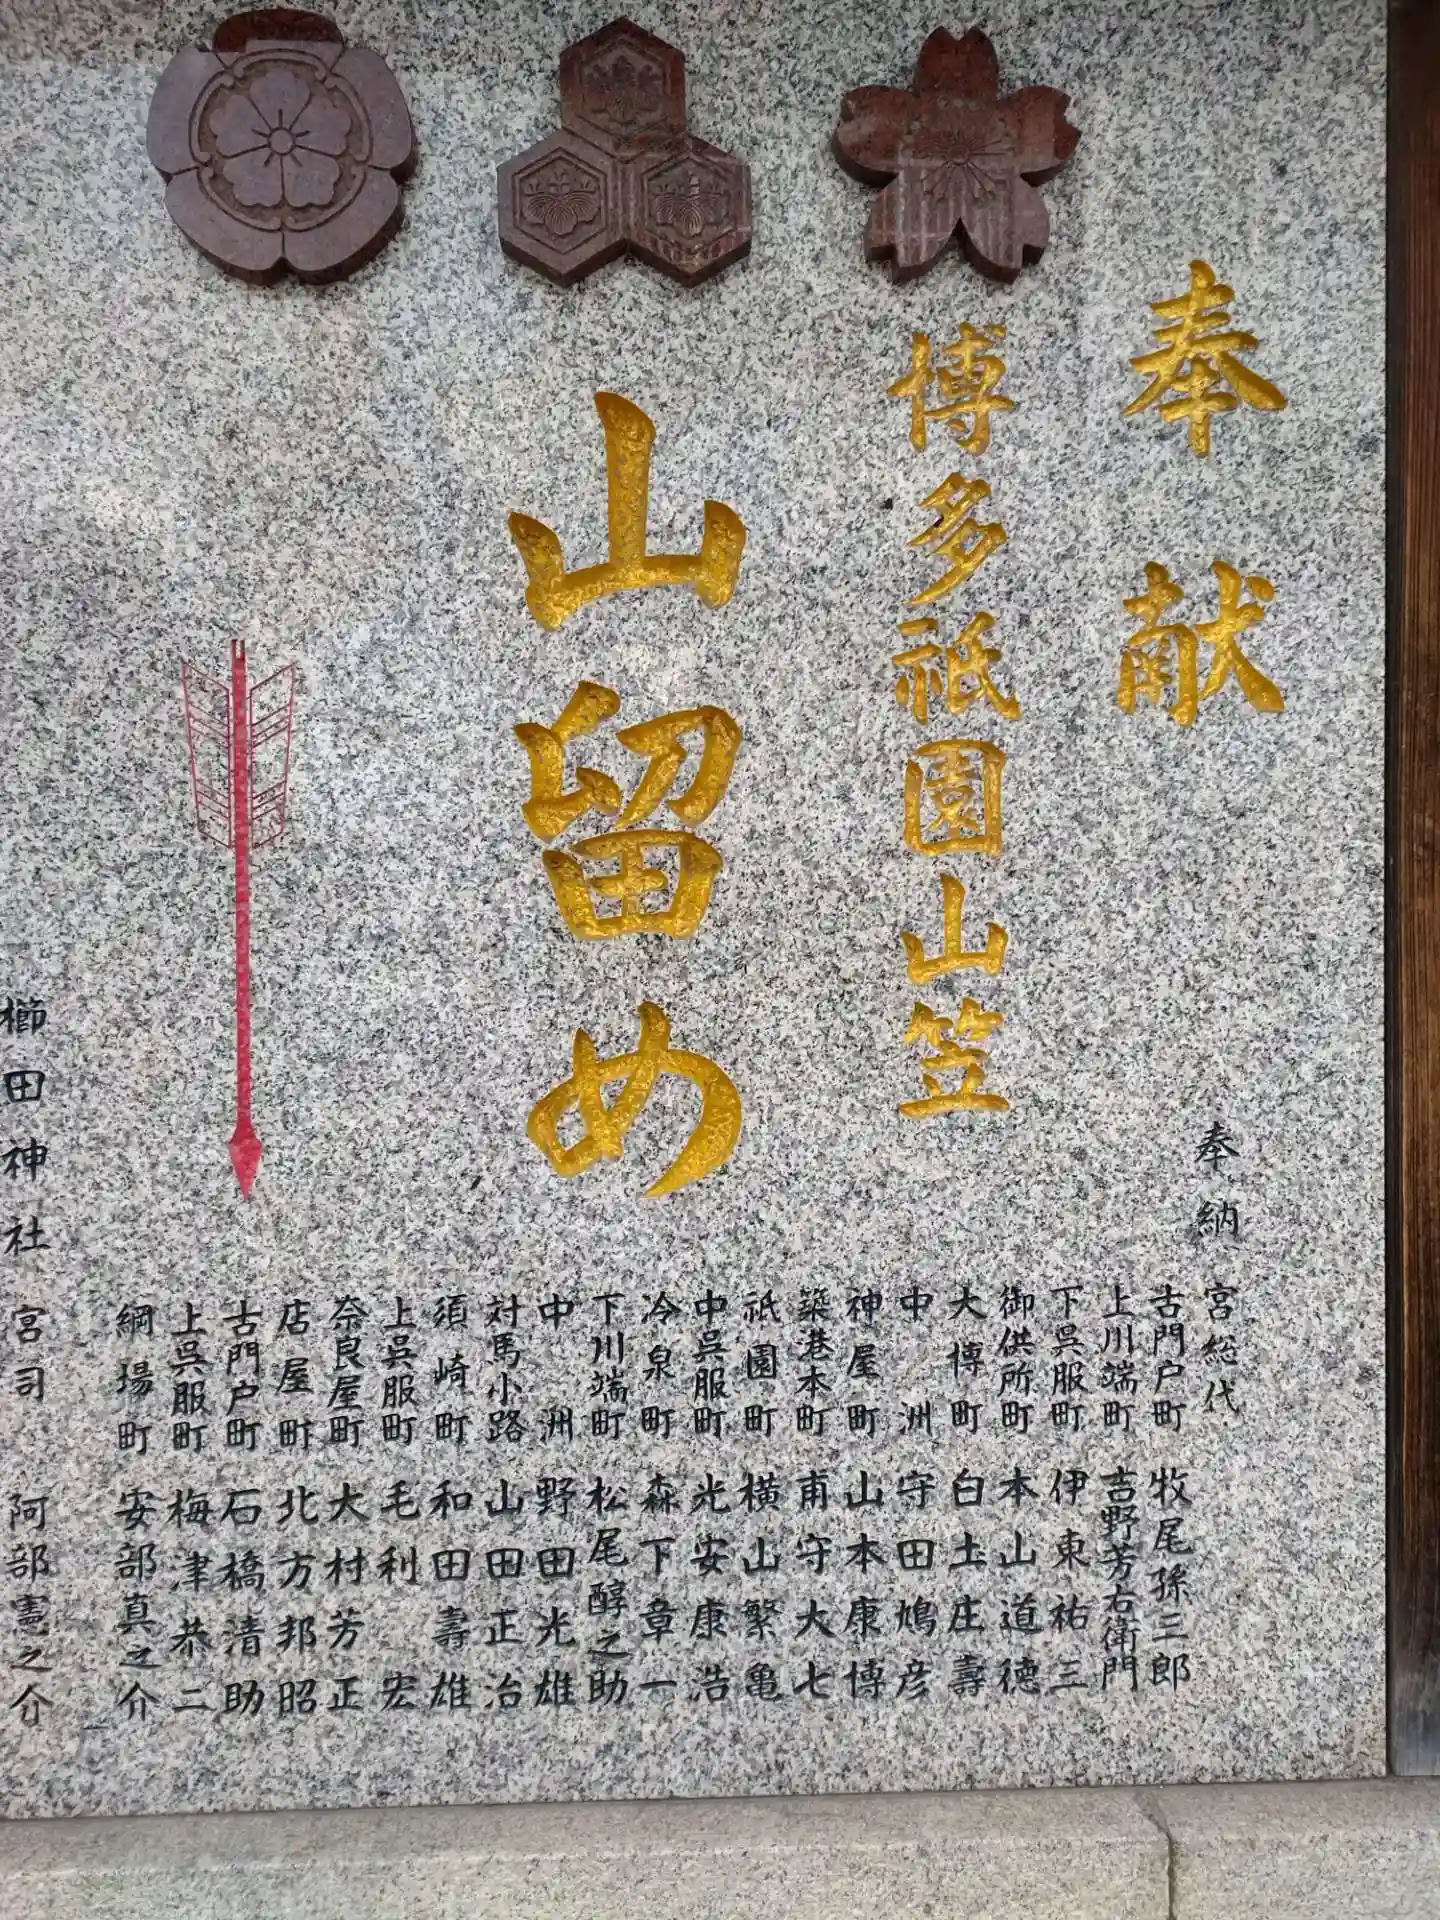 奉献
博多祇園山笠
山留め
奉納
宮総代
古門戸町 牧尾孫三郎
上川端町 吉野芳右衛門
下呉服町 伊東祐三
御供所町 本山道徳
大博町 白土庄壽
中洲 守田鳩彦
神屋町 山本康博
築港本町 甫守大七
祇園町 横山繁亀
中呉服町 光安康浩
冷泉町 森下章一
下川端町 松尾醇之助
中洲 野田光雄
対馬小路 山田正治
須崎町 和田壽雄
上呉服町 毛利宏
奈良屋町 大村芳正
店屋町 北方邦昭
古門戸町 石橋清助
上呉服町 梅津恭二
綱場町 安部真之介
櫛田神社 宮司 阿部憲之介